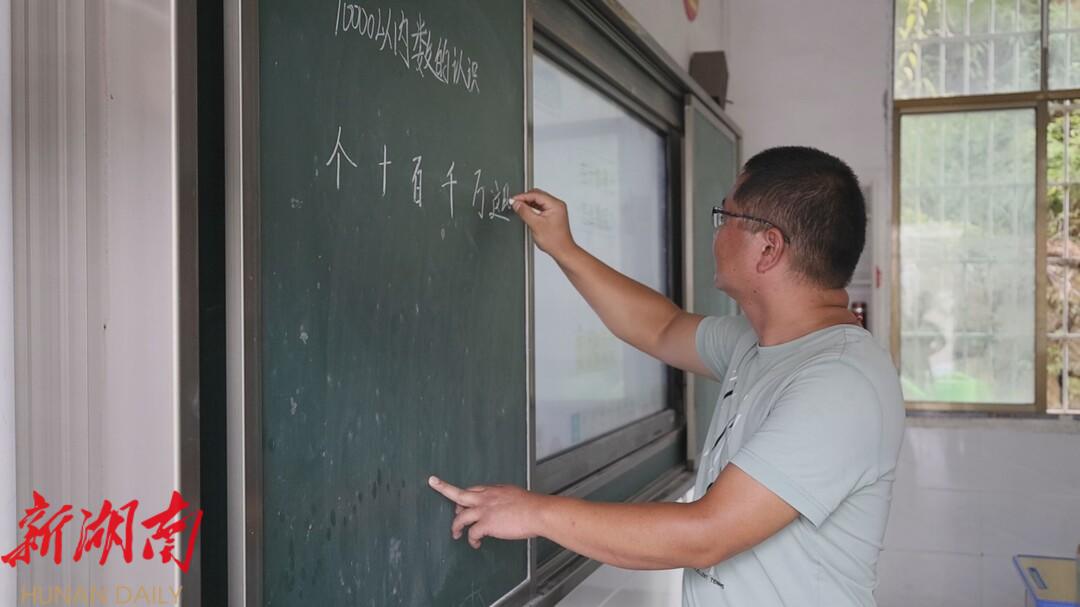 10000以内数的认识
个 十 百 千 万 这
新湖南
HUNAN DAILY